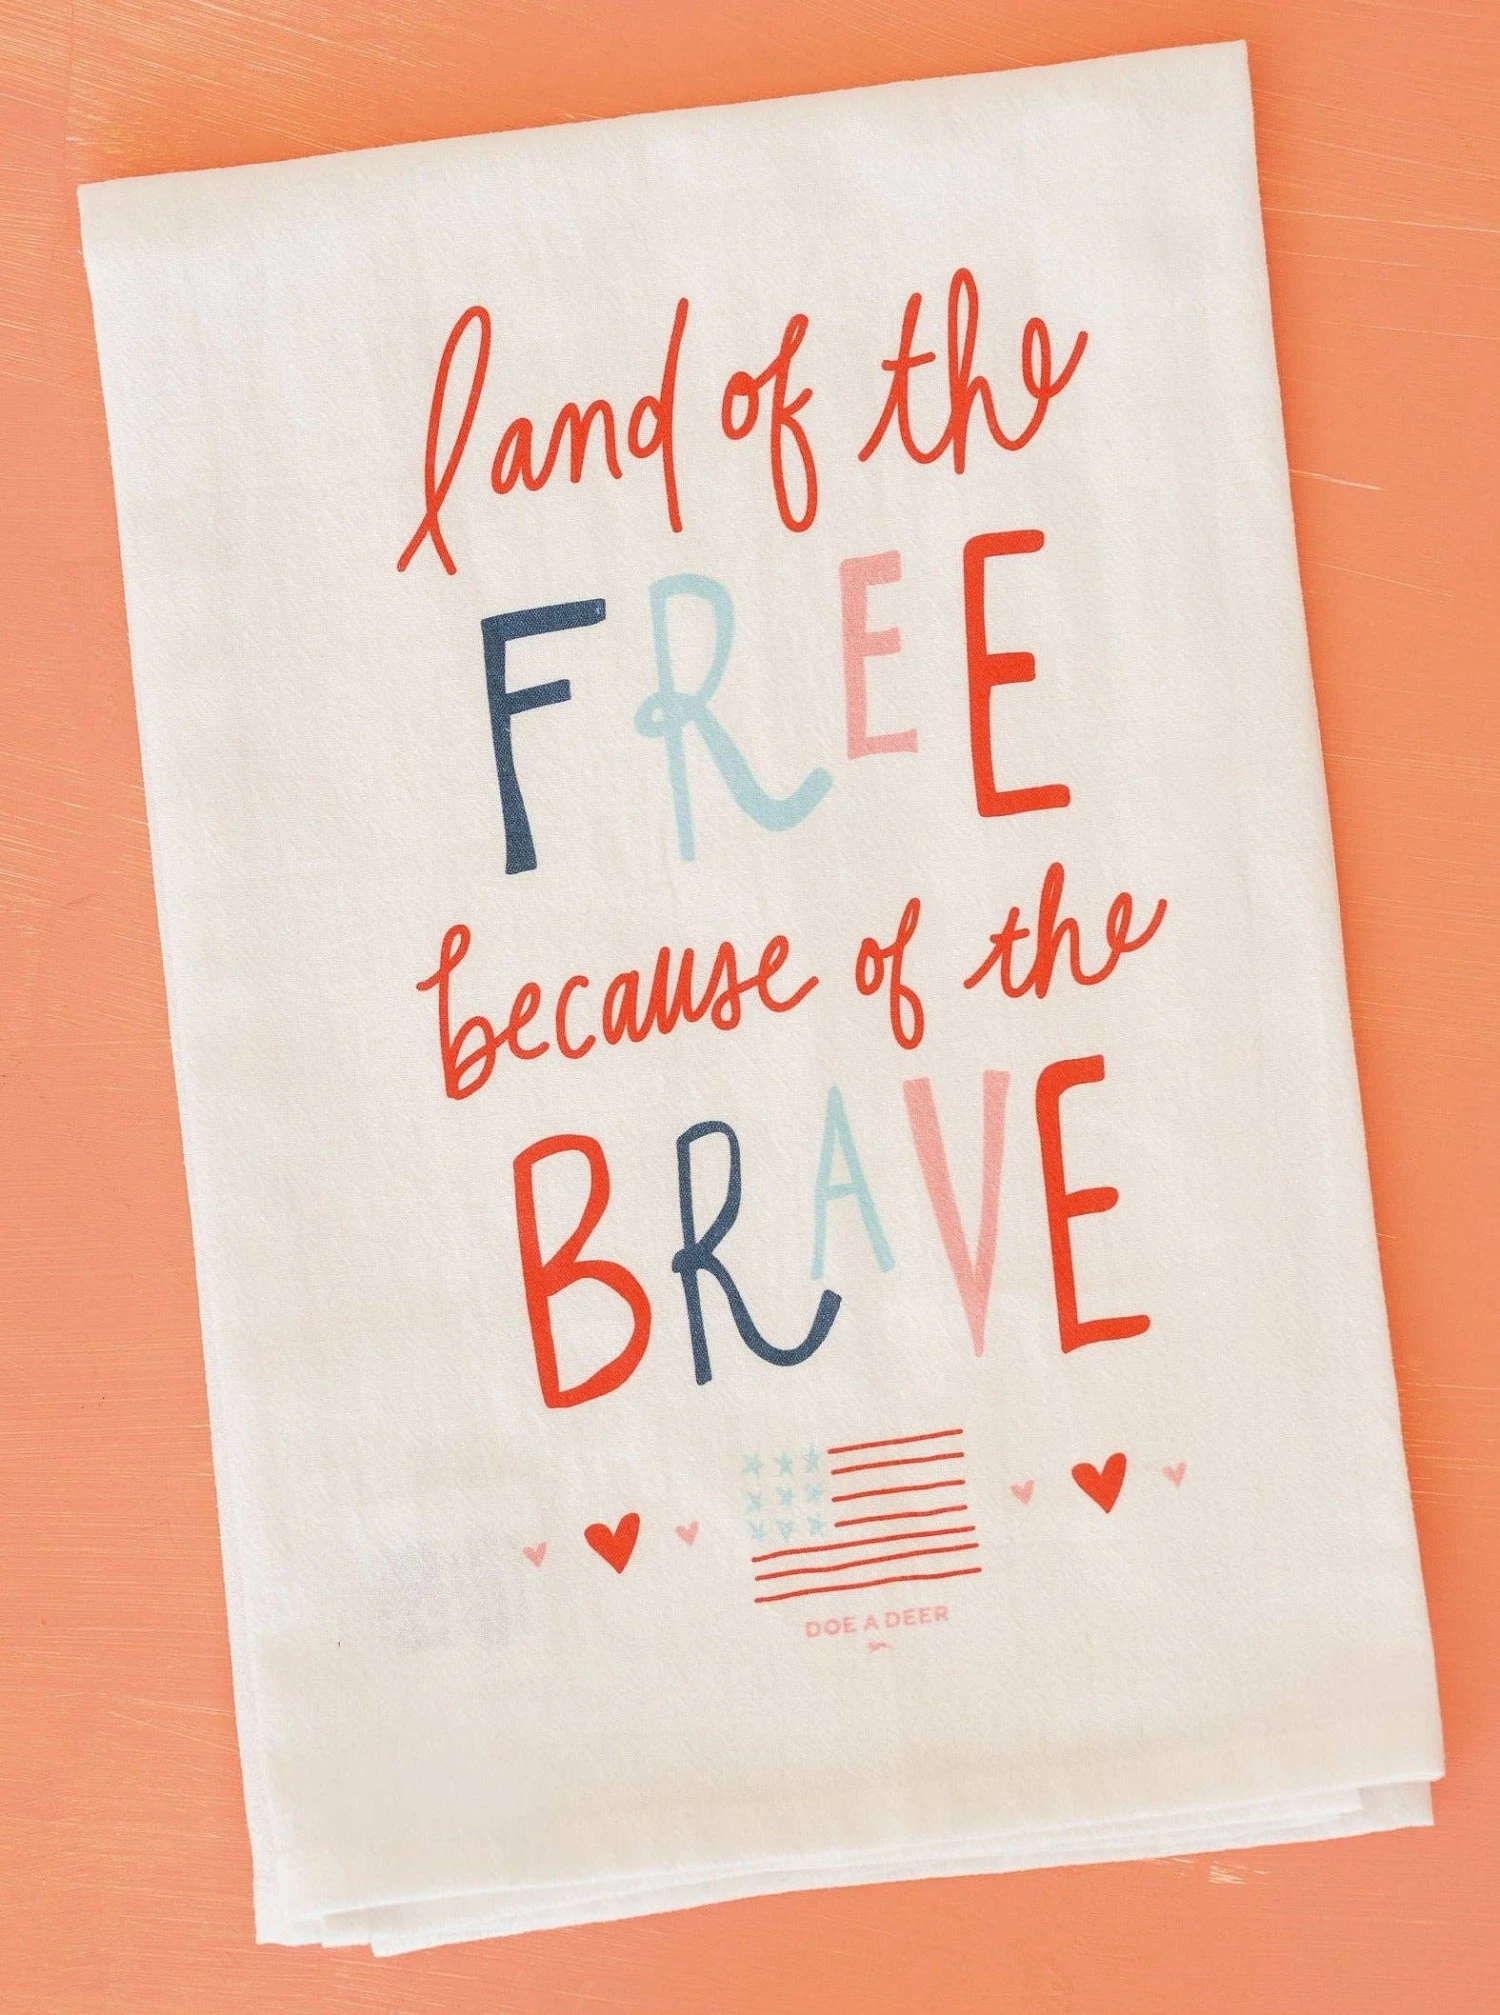 land of the
FREE
because of the
BRAVE
DOE A DEER